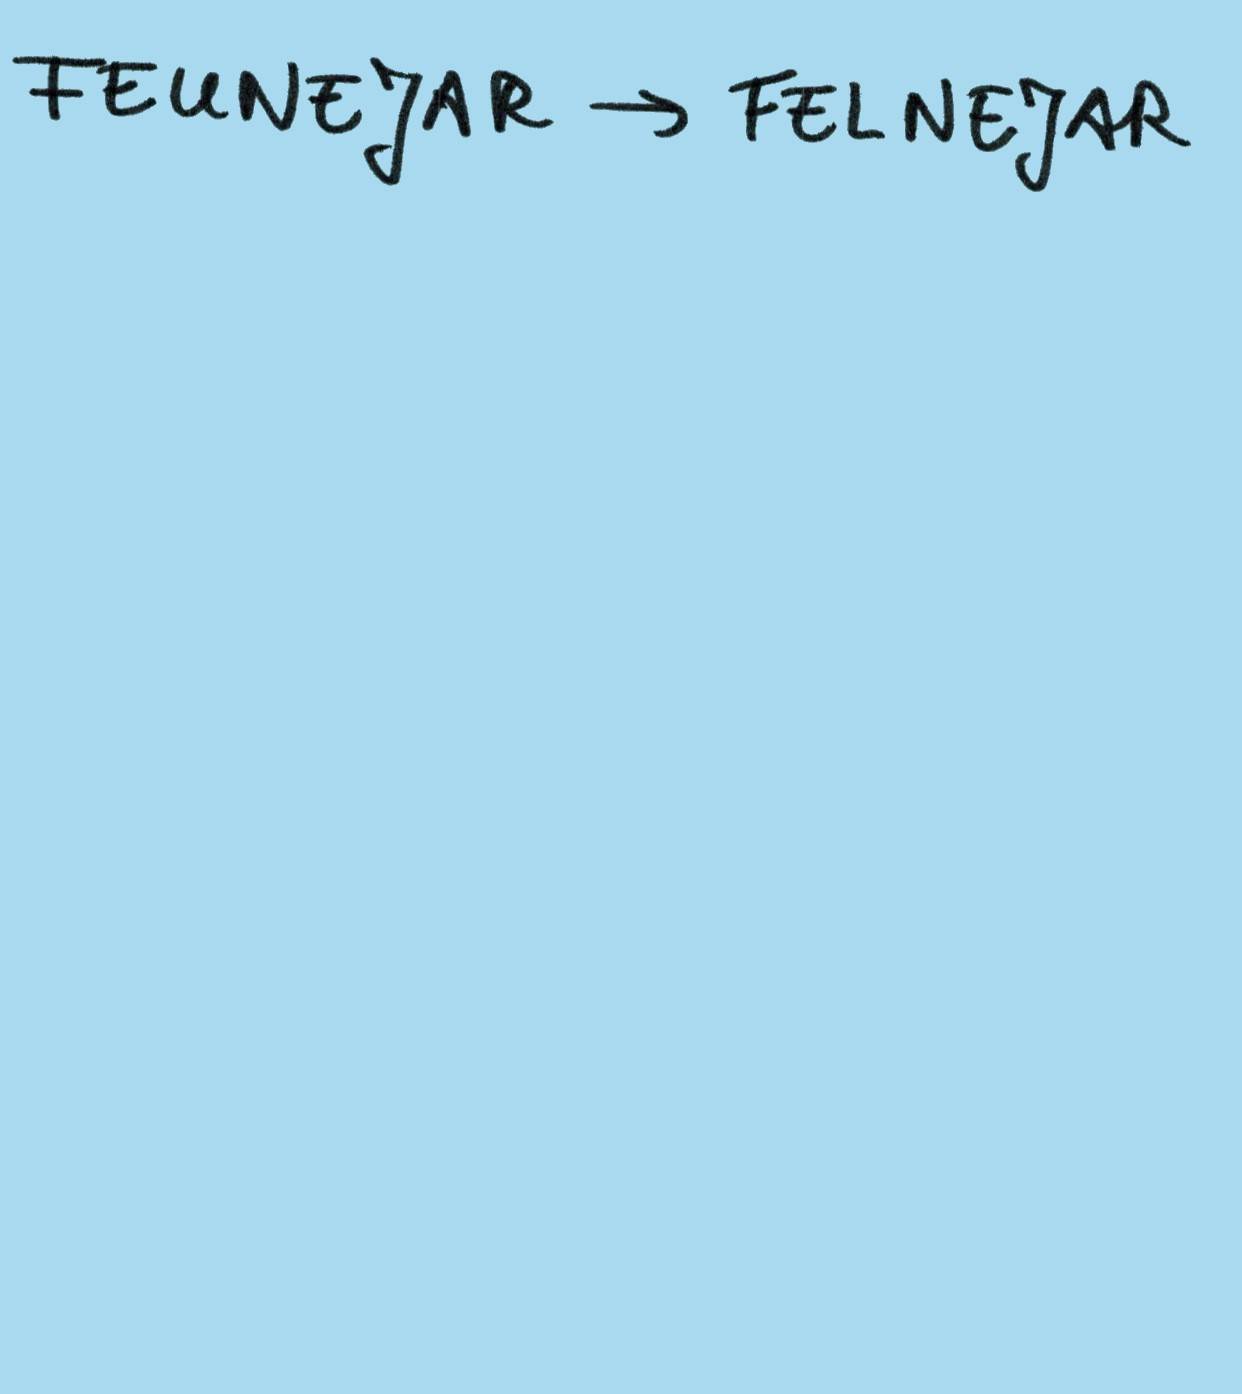 FEUNEJAR → FELNEJAR